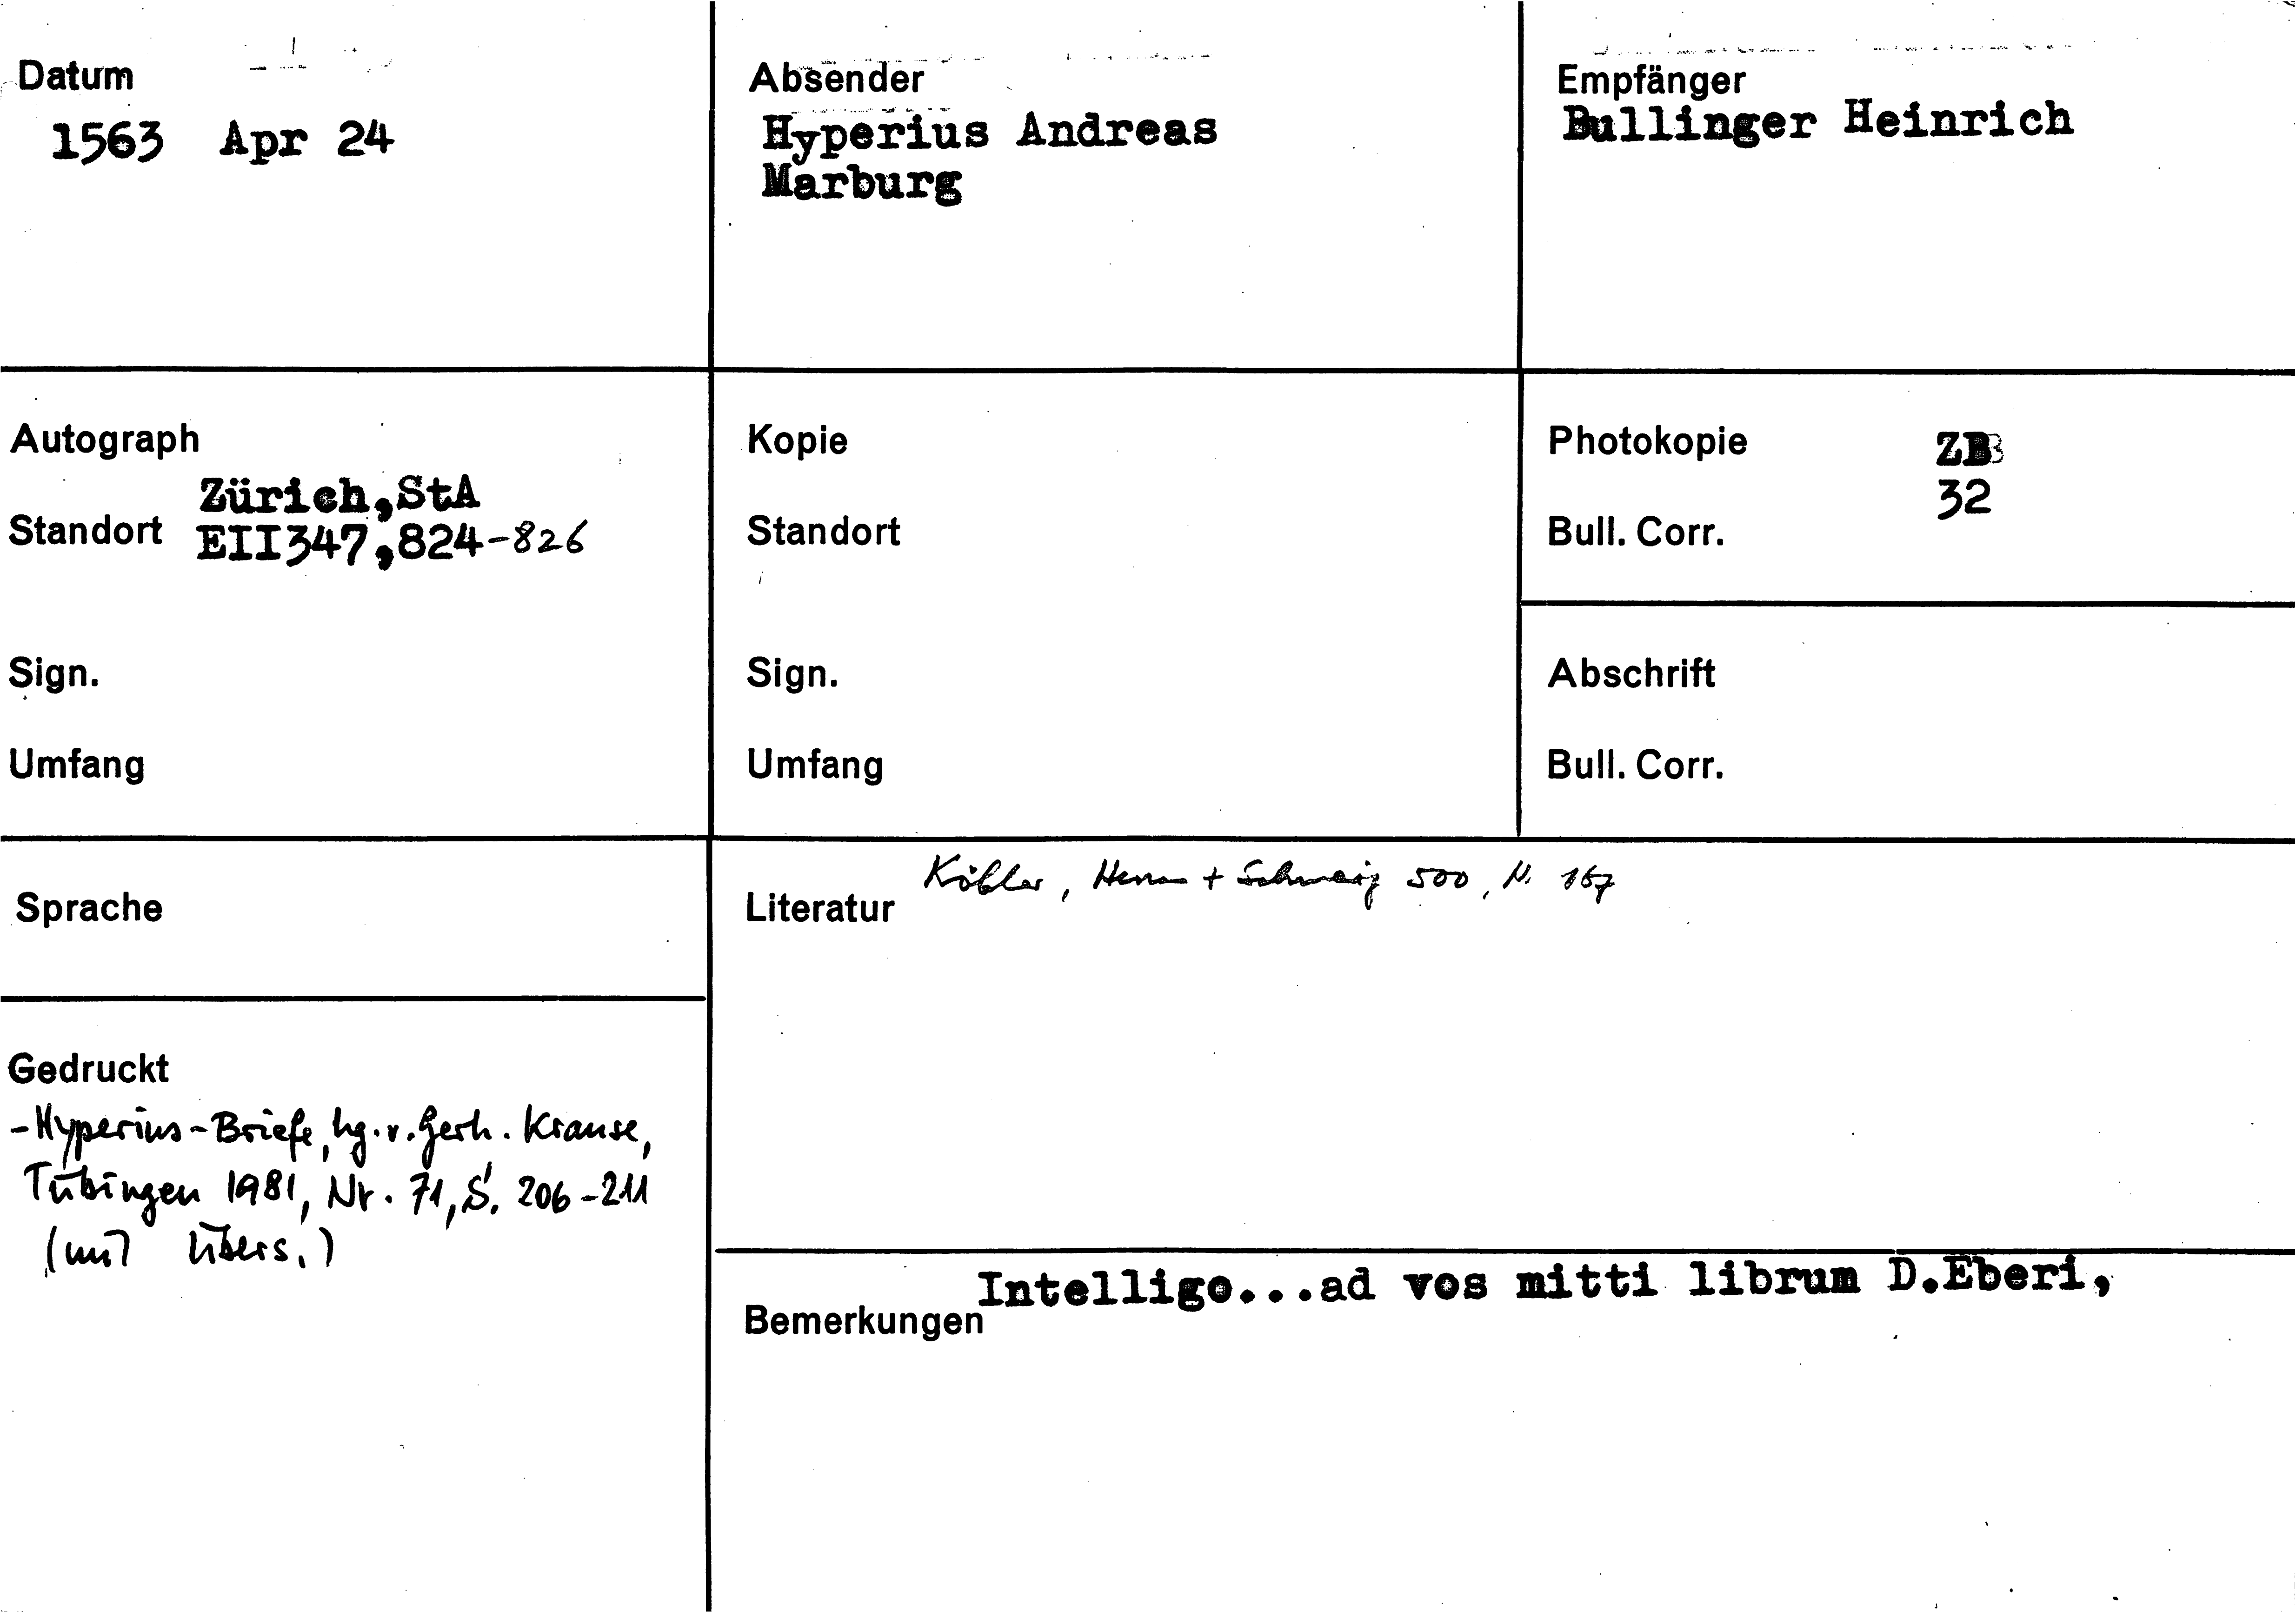 Datum
1563 Apr 24
Absender
Hyperius Andreas
Marburg
Empfänger
Bullinger Heinrich
Autograph
Zürich,StA
Standort EII347,824-826
Sign.
Umfang
Kopie
Standort
Sign.
Umfang
Photokopie ZB
32
Bull. Corr.
Abschrift
Bull. Corr.
Sprache
Literatur Köhler, Hessen + Schweiz 500, N. 167
Gedruckt
-Hyperius-Briefe, hg. v. Gerh. Krause,
Tübingen 1981, Nr. 71, S. 206-211
(mit Übers.)
Intelligo...ad vos mitti librum D.Eberi,
Bemerkungen